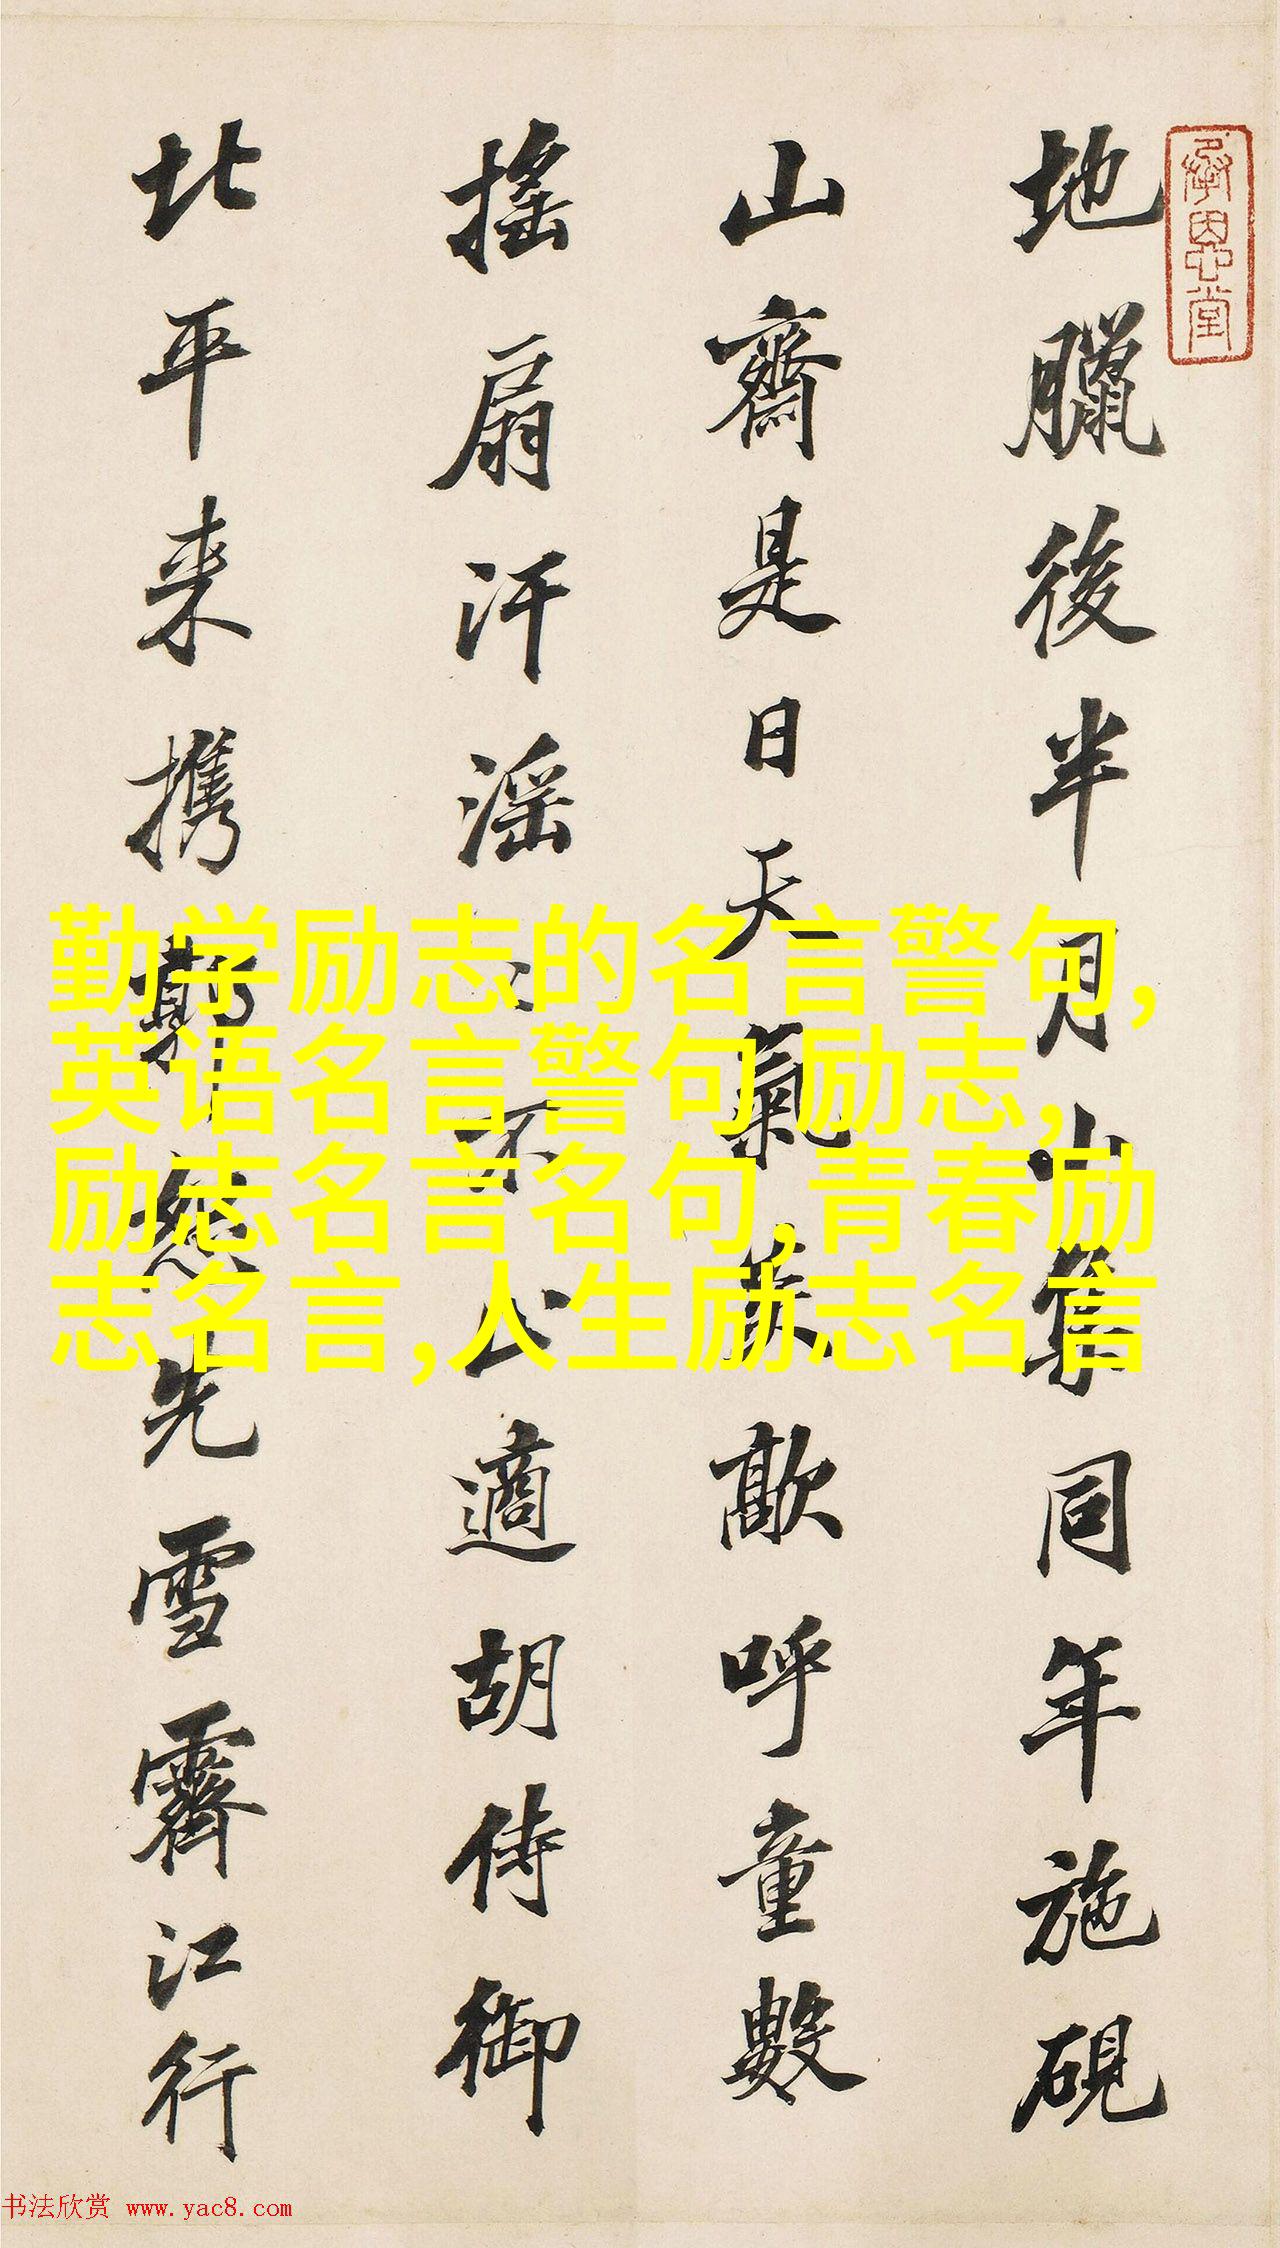 地臘後半月山集同年施硯
山齋是日天氣歊呼童數
搖扇汗淫不止適胡侍御
北平来携先雪霽江行
承恩堂
勤学励志的名言警句,
英语名言警句 励志,
励志名言名句,青春励
志名言,人生励志名言
书法欣赏 www.yac8.com